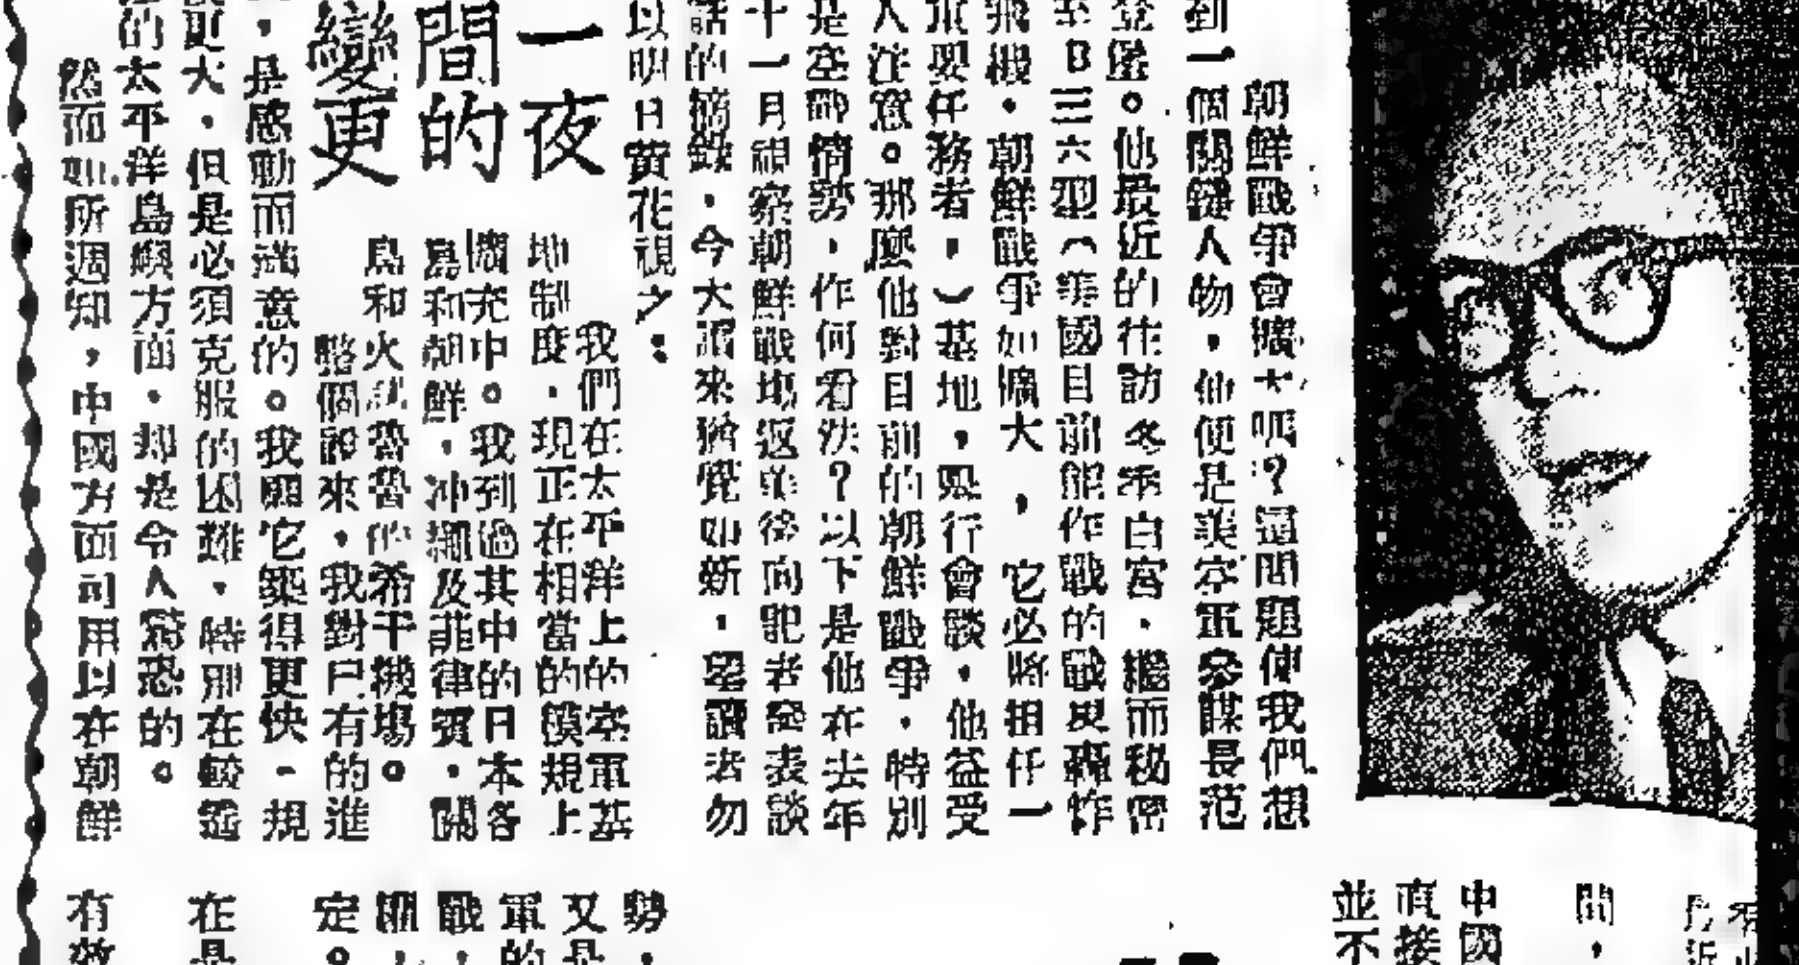 朝鮮戰爭會擴大嗎?這問題使我們想
到一個關鍵人物,他便是美空軍參謀長范
登堡。他最近的往訪冬季白宮,繼而秘密
B三六型(美國目前能作戰的戰反轟炸
飛機。朝鮮戰爭如擴大,它必將担任一
重要任務者,)基地,舉行會談,他益受
人注意。那麼他對目前的朝鮮戰爭,特別
是空戰情勢,作何看法?以下是他在去年
十一月視察朝鮮戰場返美後向記者發表談
話的摘錄,今大讀來猶覺如新,望讀者勿
以明日黃花視之:
一夜
間的
變更
我們在太平洋上的空軍基
地制度,現正在相當的模規上
擴充中。我到過其中的日本各
島和朝鮮,冲繩及菲律賓,關
島和火奴魯魯的希干機場。
整個說來,我對已有的進
,是感動而滿意的。我願它築得更快,規
更大,但是必須克服的困難,特別在較
的太平洋島嶼方面,却是令人驚恐的。
然而如所週知,中國方面可用以在朝鮮
中國
直接
並不
間,
勢,
又是
軍的
戰,
定。
在是
有效